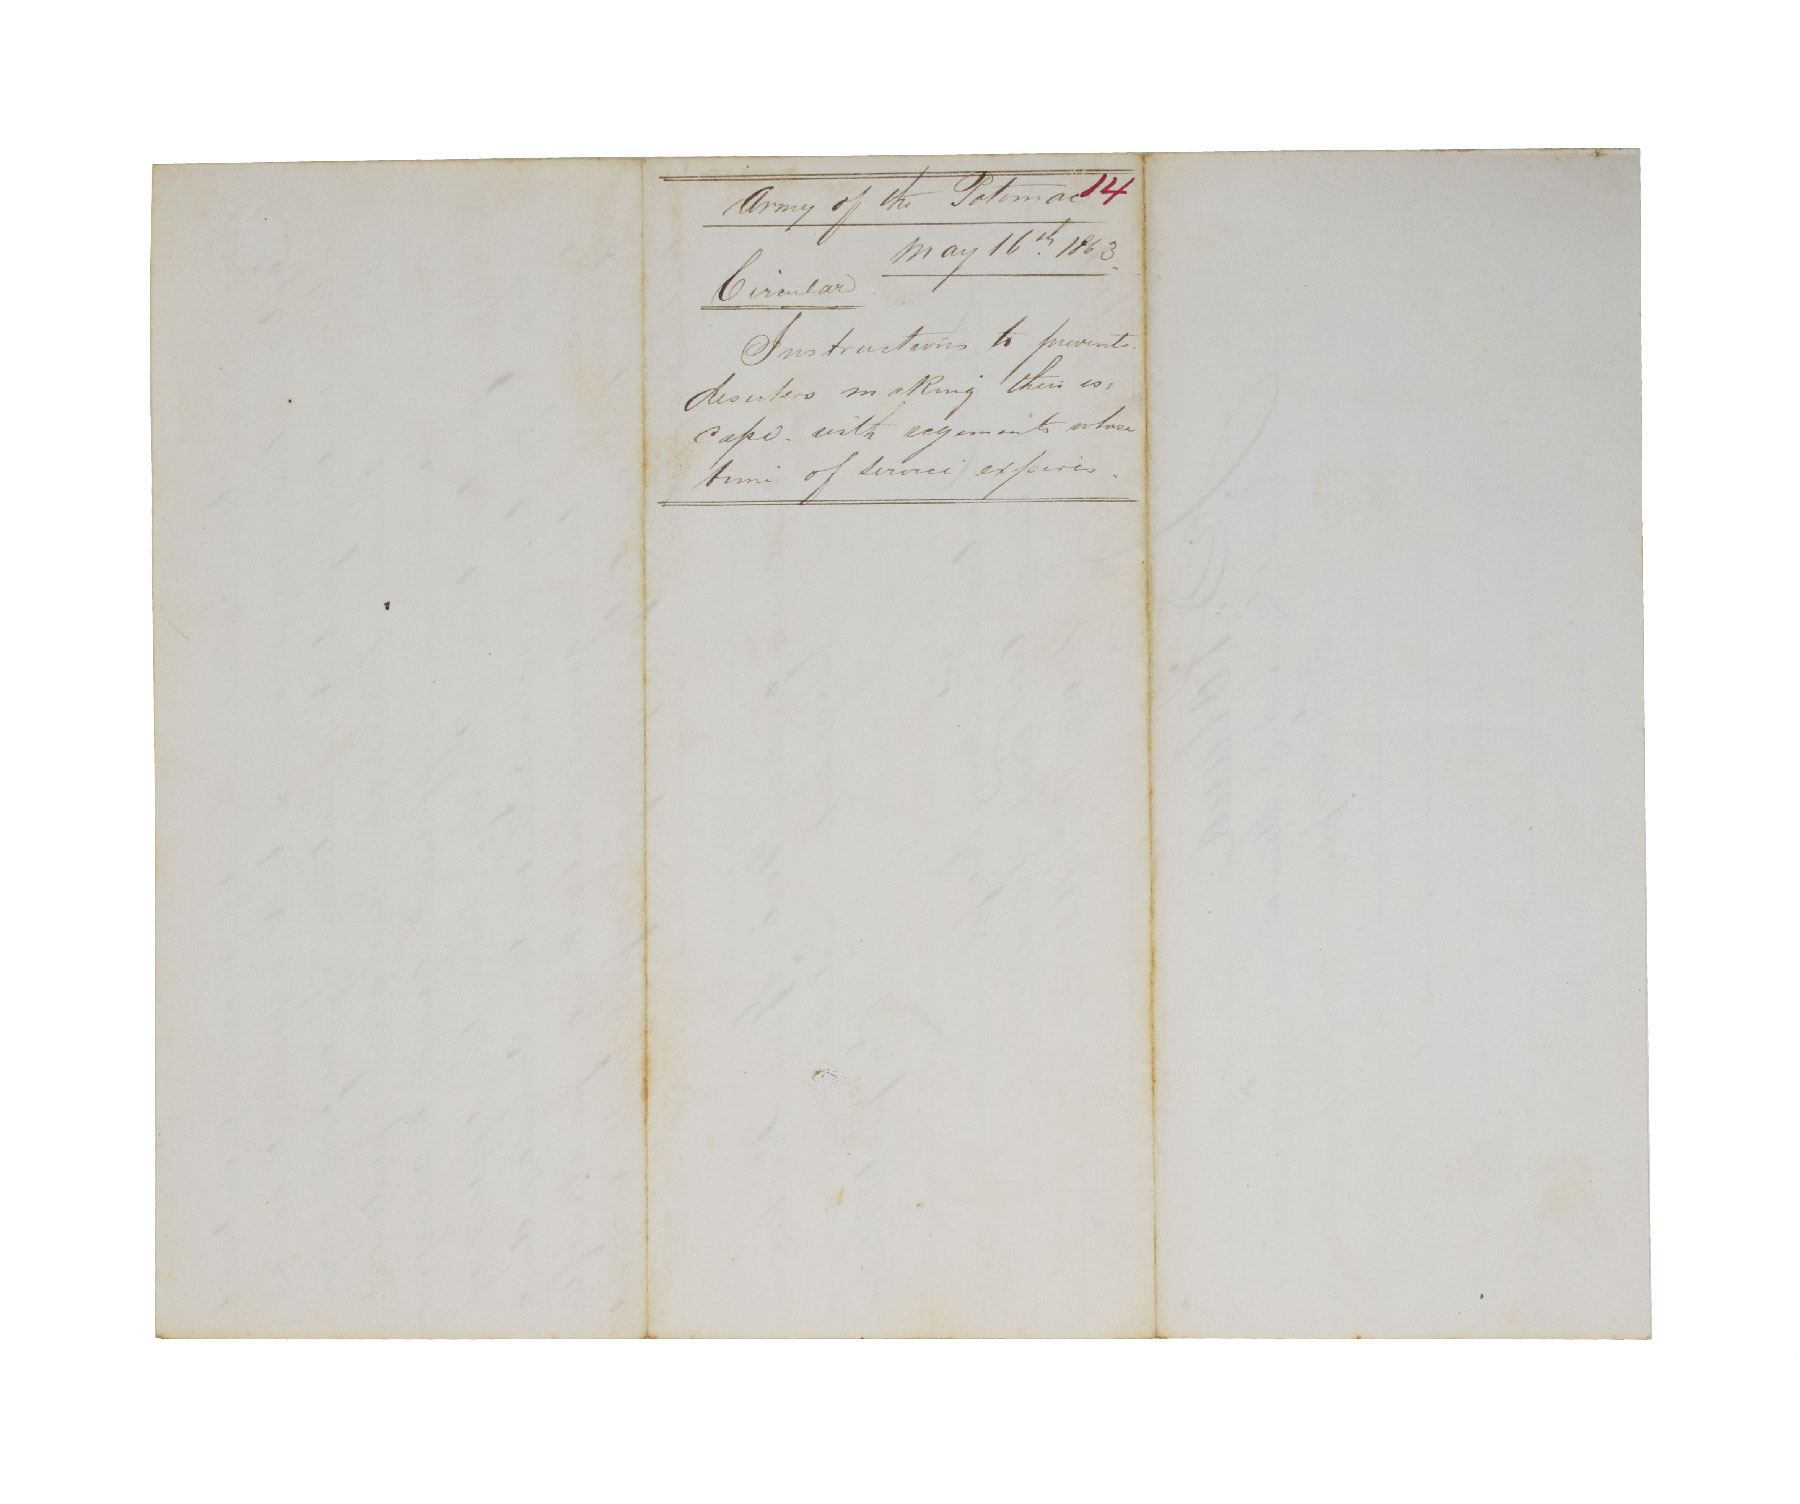 Army of the Potomac 14
May 16th. 1863.
Circular
Instructions to prevent
deserters making their es=
cape. with regiments whose
time of service expires.